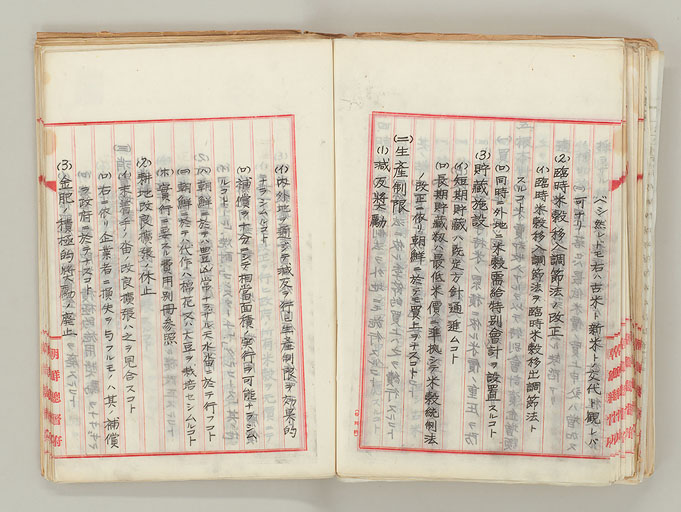 ベシ然レドモ右ハ古米ト新米トノ交代ト観レバ
可ナリ
(2) 臨時米穀移入調節法ノ改正
(イ) 臨時米穀移入調節法ヲ臨時米穀移出調節法ト
スルコト
(ロ) 同時ニ外地ニ米穀需給特別會計ヲ設置スルコト
(3) 貯蔵施設
(イ) 短期貯蔵ハ既定方針通進ムコト
(ロ) 長期貯蔵籾ハ最低米價ニ準拠シテ米穀統制法
ノ改正ニ依リ朝鮮ニ於テモ買上ヲナスコト
(二) 生産制限
(1) 減反奨励
(イ) 内外地ヲ通ジテ減反ヲ行ヒ生産制限ヲ効果的
ナラシムルコト
(ロ) 補償ヲ十分ニシテ相當面積ノ実行ヲ可能ナラシム
ルコト
(ハ) 朝鮮ニ於テハ豊凶常ナラザル水畓ニ於テ行フコト
(ニ) 朝鮮ニ於テハ代作ハ棉花又ハ大豆ヲ栽培セシムルコト
(ホ) 実行ニ要スル費用別冊参照
(2) 耕地改良擴張ノ休止
(イ) 未着手ノ畓ノ改良擴張ハ之ヲ見合スコト
(ロ) 右ニ依リ企業者ニ損失ヲ与フルモノハ其ノ補償
ヲ政府ニ於テナスコト
(3) 金肥ノ積極的奨励ノ廃止
朝鮮總督府